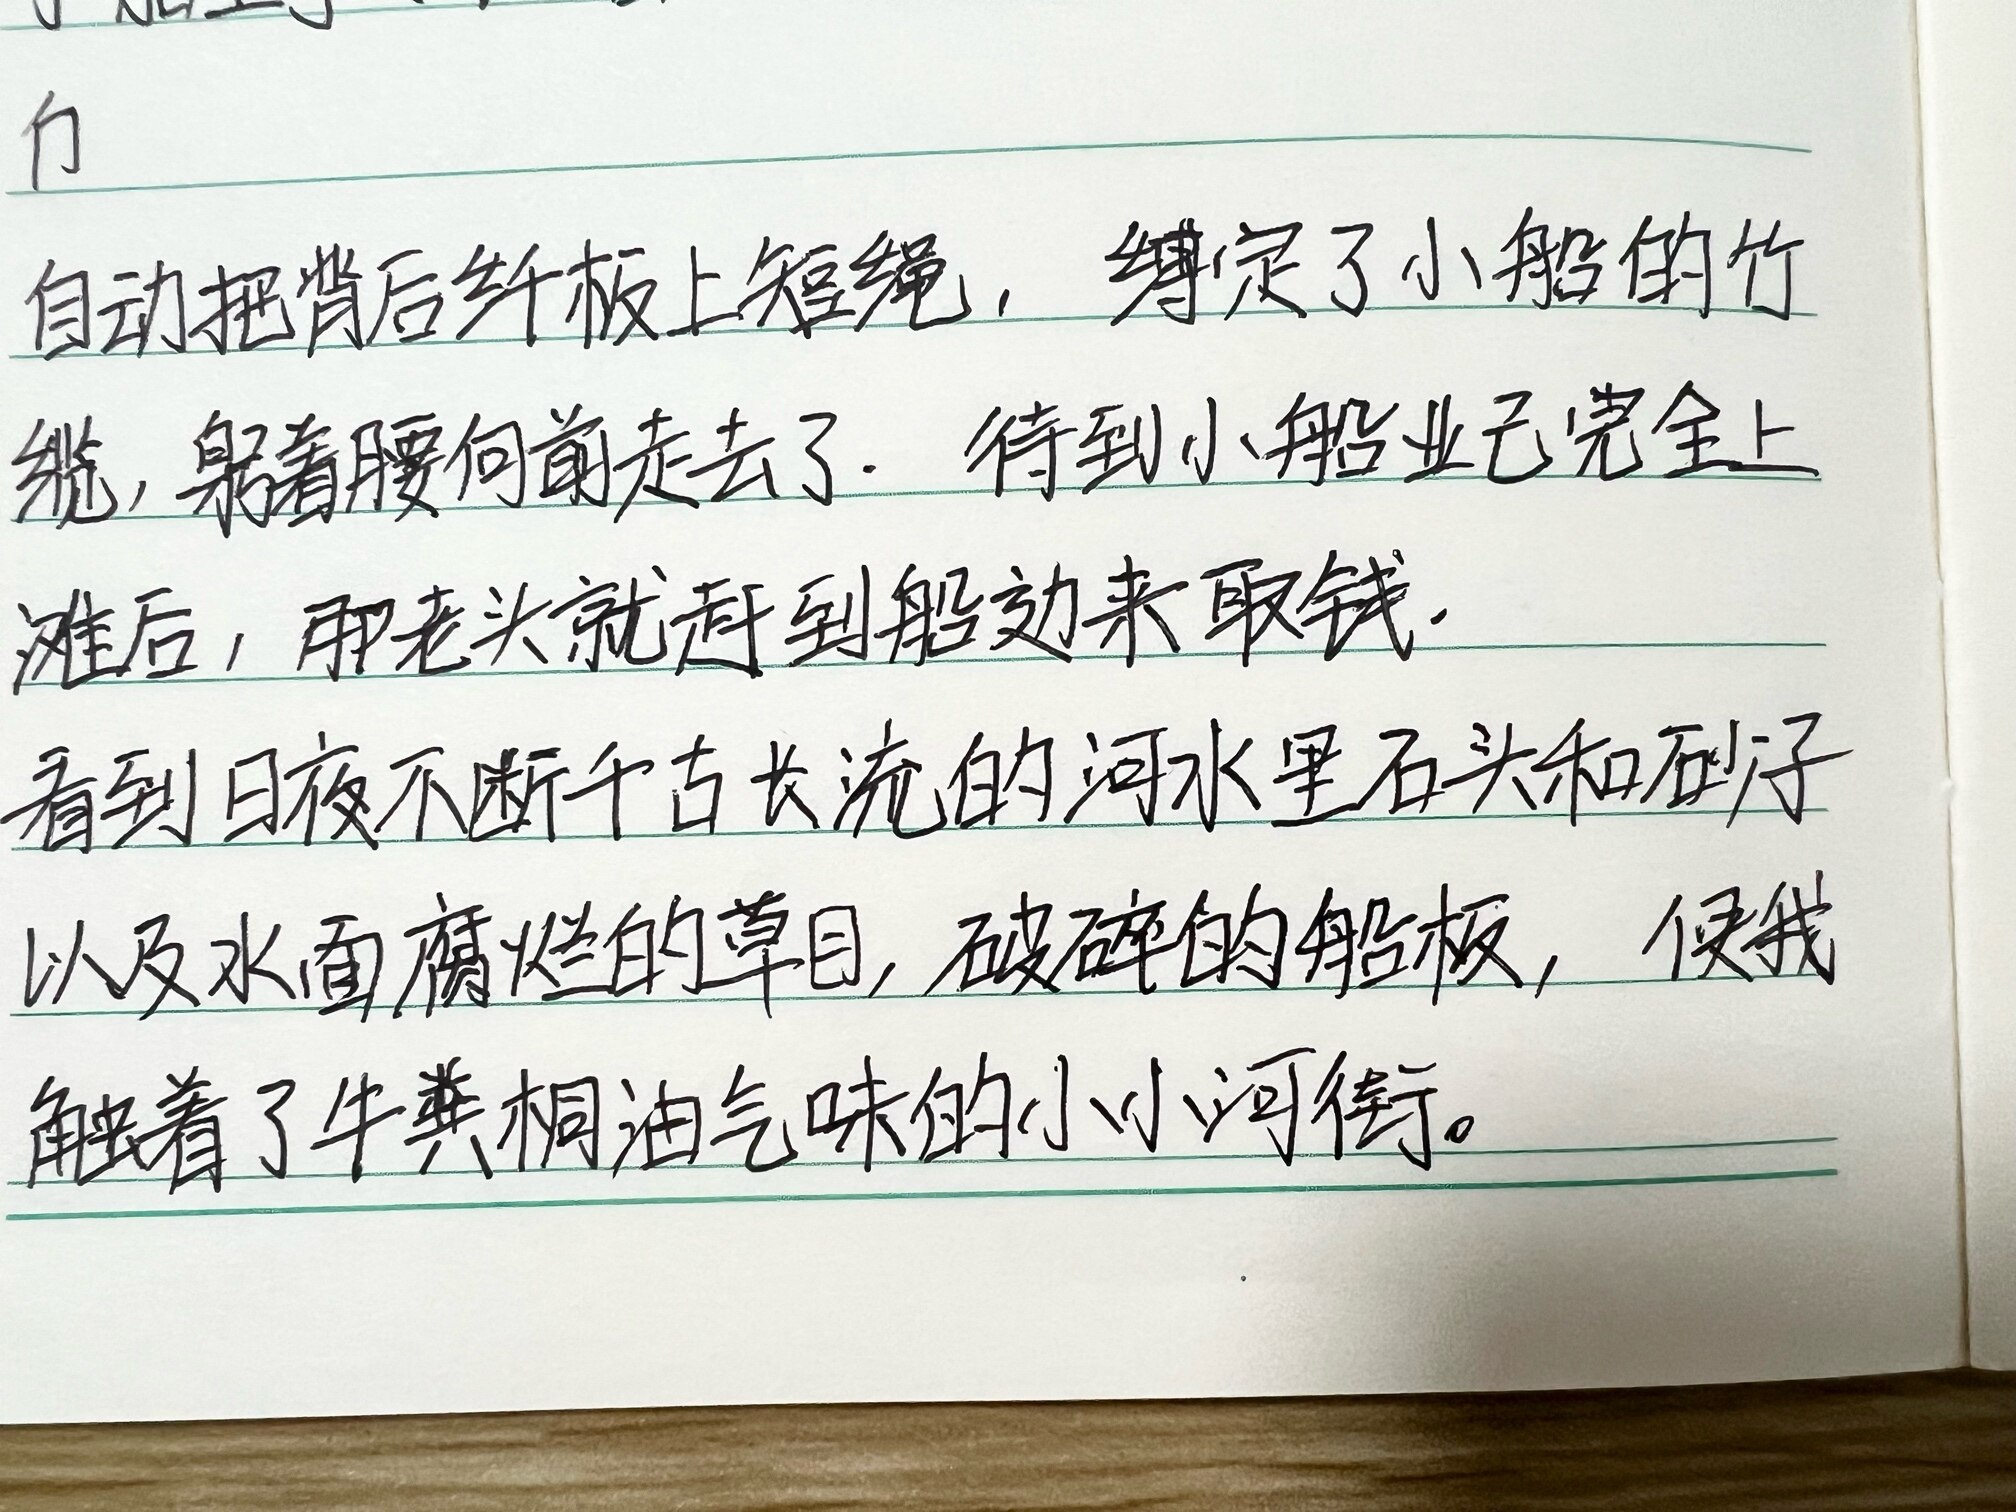 自动把背后纤板上短绳，缚定了小船的竹
缆，躬着腰向前走去了.待到小船业已完全上
滩后，那老头就赶到船边来取钱.
看到日夜不断千古长流的河水里石头和砂子
以及水面腐烂的草目，破碎的船板，使我
触着了牛粪桐油气味的小小河街。